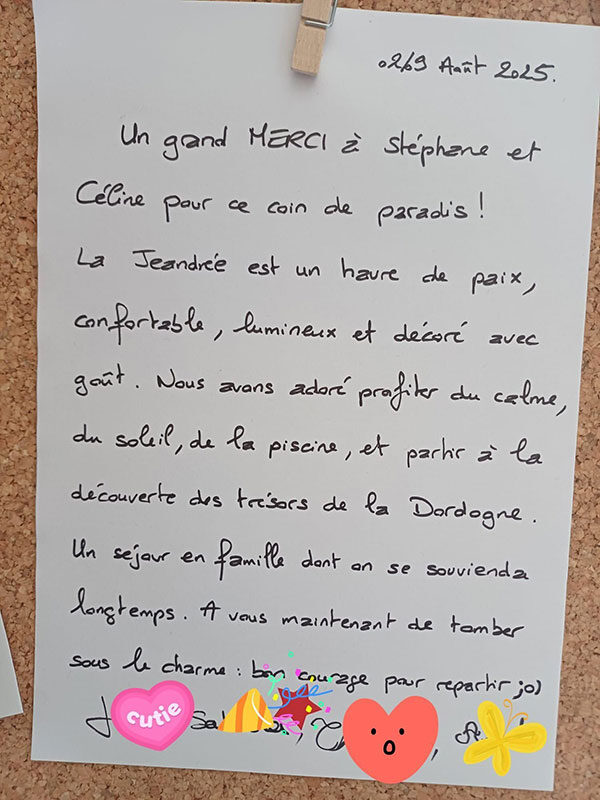 02/09 Août 2025.
Un grand MERCI à Stéphane et
Céline pour ce coin de paradis !
La Jeandrée est un havre de paix,
confortable, lumineux et décoré avec
goût. Nous avons adoré profiter du calme,
du soleil, de la piscine, et partir à la
découverte des trésors de la Dordogne.
Un séjour en famille dont on se souviendra
longtemps. A vous maintenant de tomber
sous le charme : bon courage pour repartir ;o)
cutie